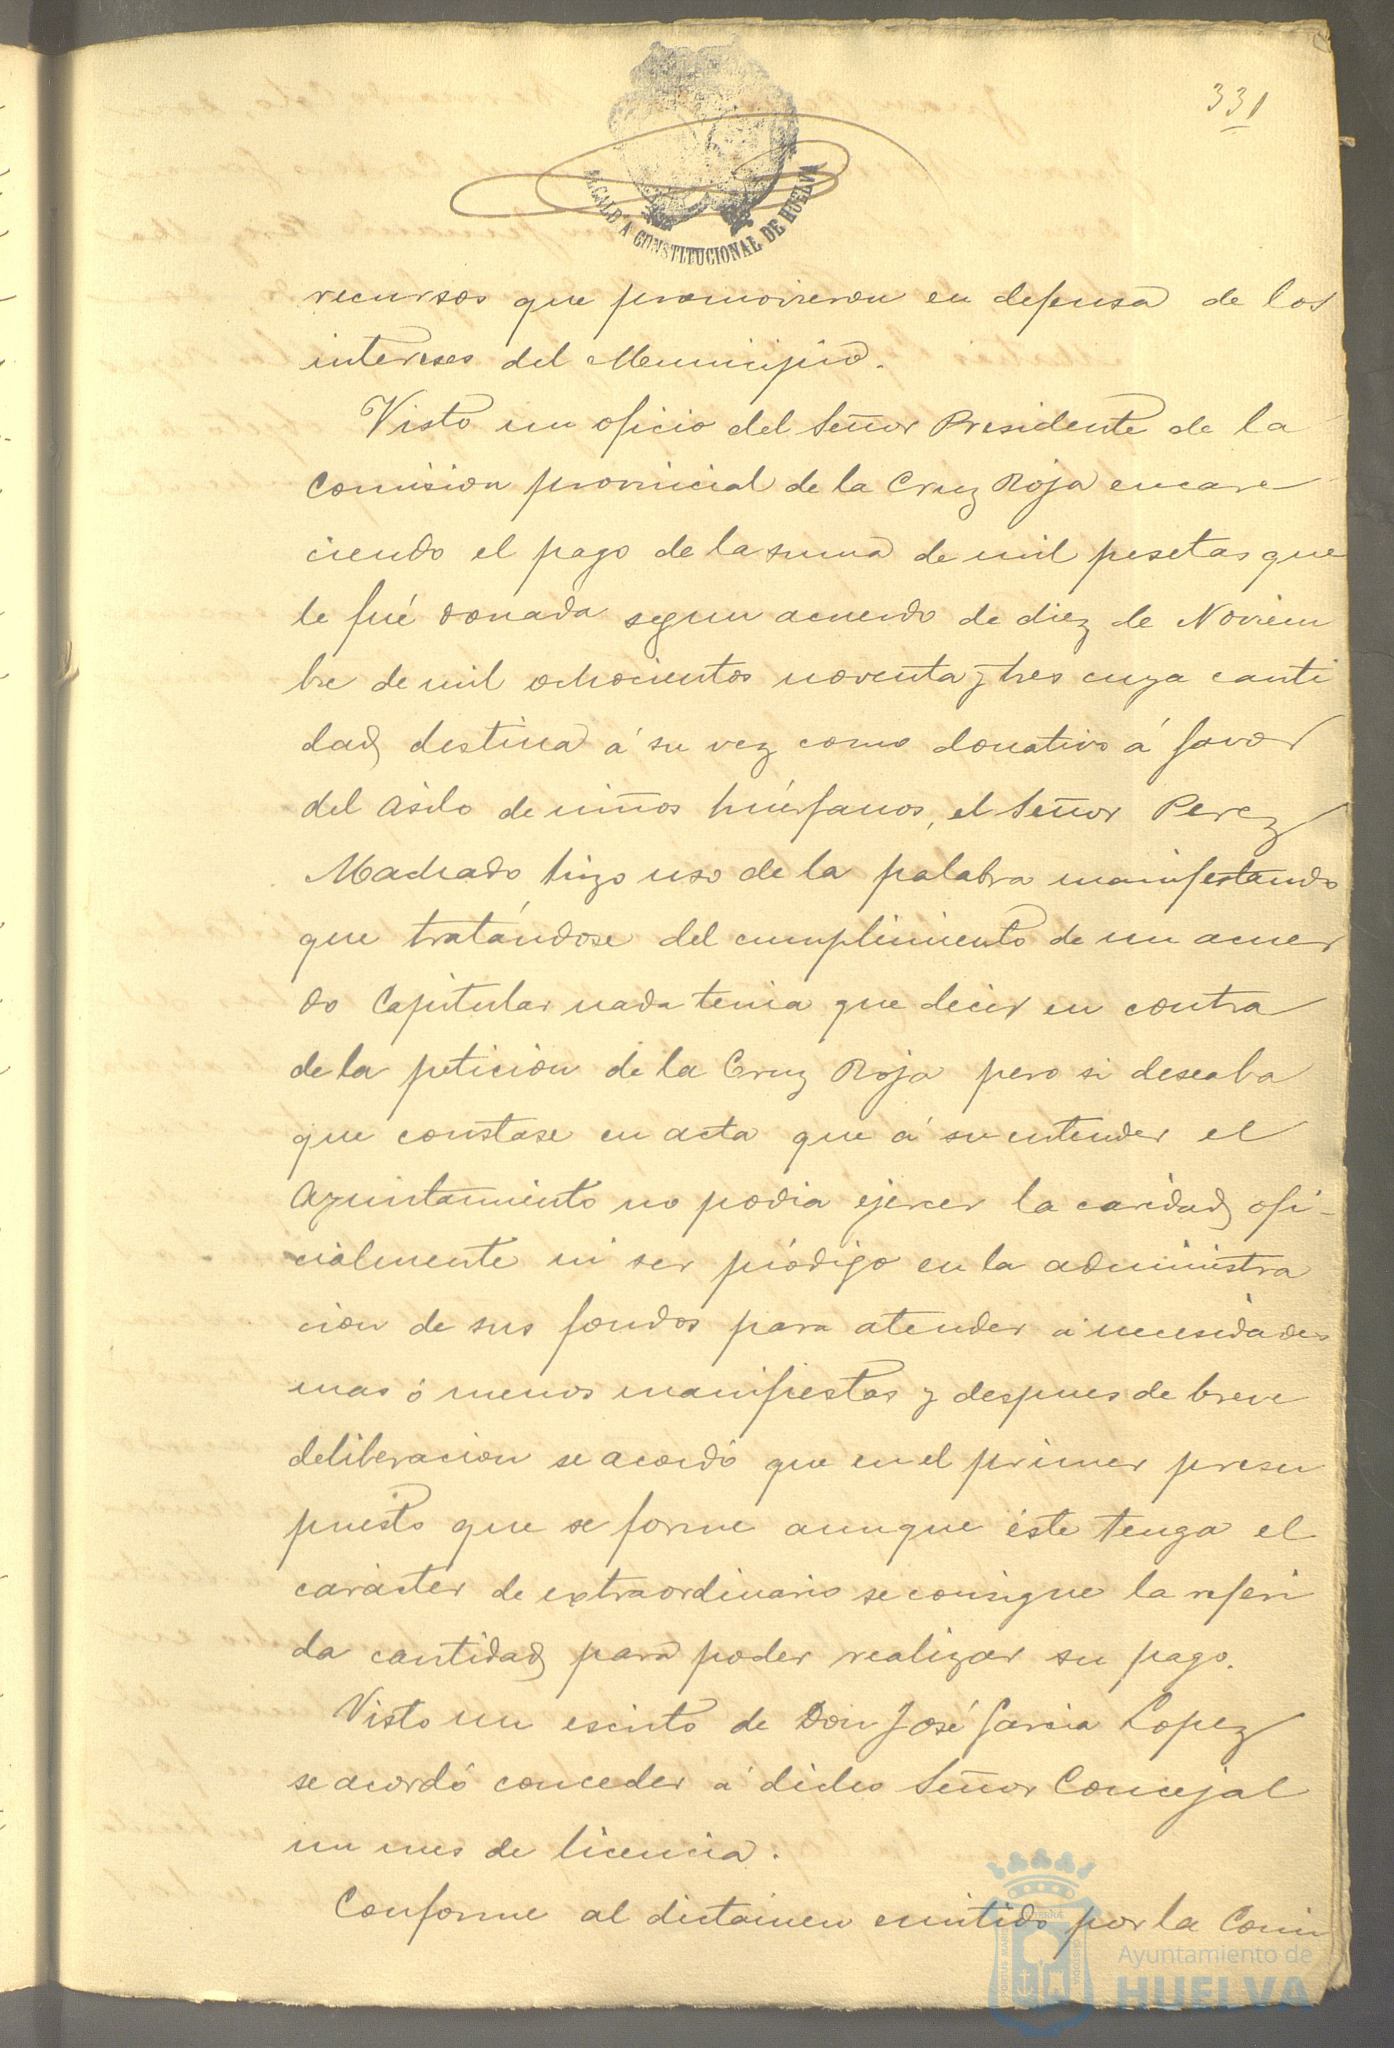 331
ALCALDIA CONSTITUCIONAL DE HUELVA
recursos que promovieron en defensa de los
intereses del Municipio.
Visto un oficio del Señor Presidente de la
Comision provincial de la Cruz Roja encare-
ciendo el pago de la suma de mil pesetas que
le fué donada segun acuerdo de diez de Noviem
bre de mil ochocientos noventa y tres cuya canti
dad destina á su vez como donativo á favor
del Asilo de niños huérfanos, el Señor Perez
Machado hizo uso de la palabra manifestando
que tratándose del cumplimiento de un acuer
do Capitular nada tenia que decir en contra
de la peticion de la Cruz Roja pero si deseaba
que constase en acta que á su entender el
Ayuntamiento no podia ejercer la caridad ofi-
cialmente ni ser pródigo en la administra
cion de sus fondos para atender á necesidades
mas ó menos manifiestas y despues de breve
deliberacion se acordó que en el primer presu
puesto que se forme aunque éste tenga el
carácter de extraordinario se consigne la referi
da cantidad para poder realizar su pago.
Visto un escrito de Don José Garcia Lopez
se acordó conceder á dicho Señor Concejal
un mes de licencia.
Conforme al dictamen emitido por la Comi
Ayuntamiento de
HUELVA